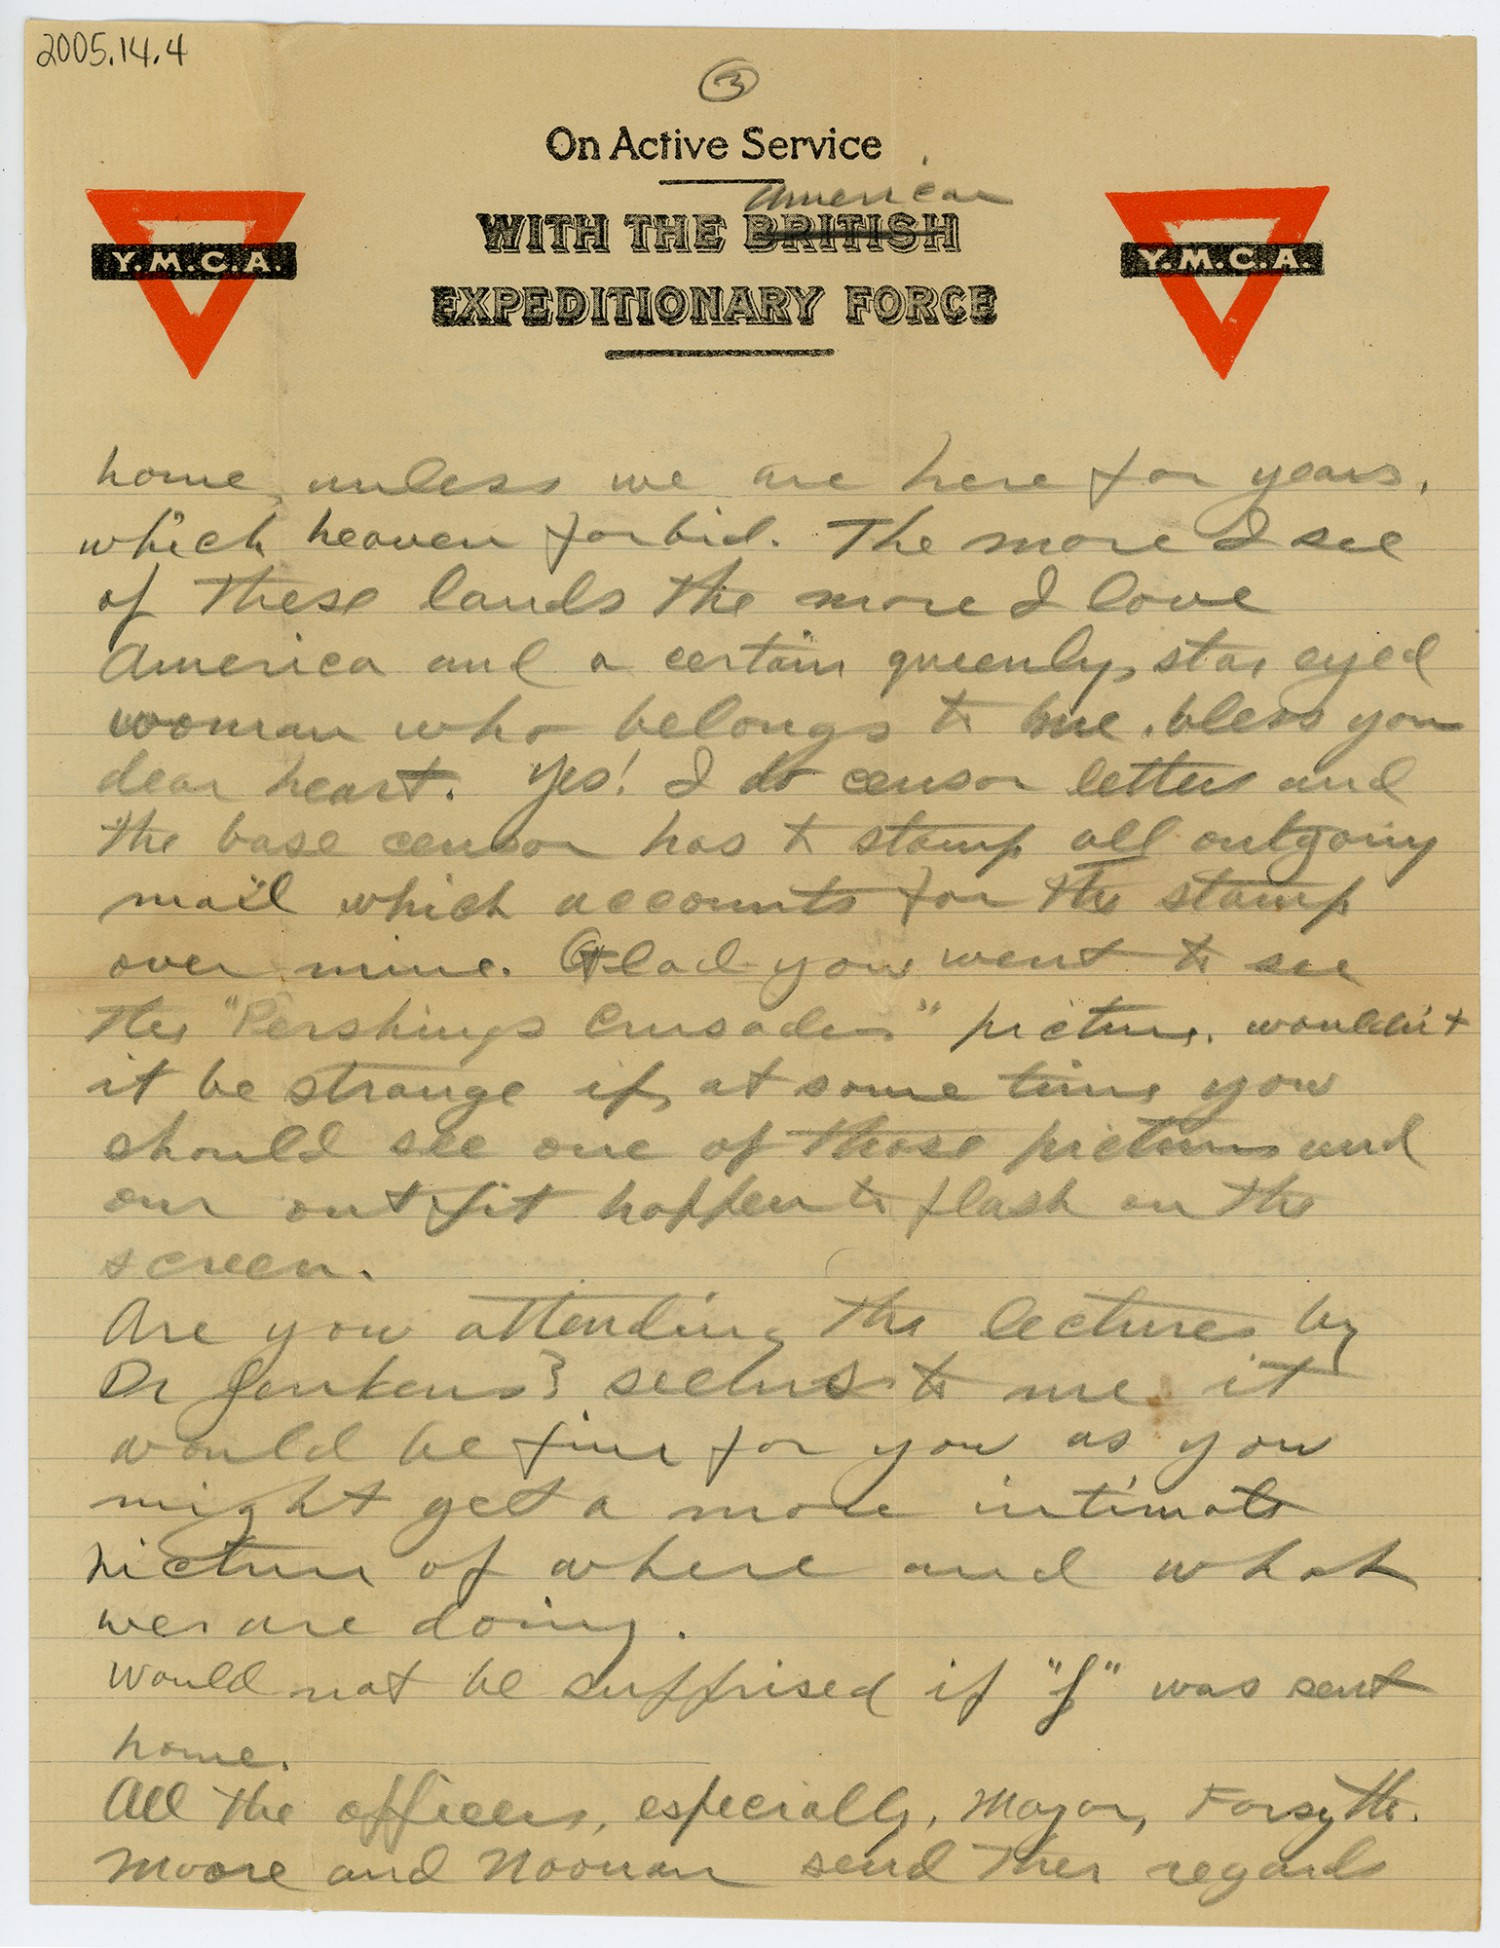 2005.14.4
3
On Active Service
American
WITH THE BRITISH
EXPEDITIONARY FORCE
Y.M.C.A.
Y.M.C.A.
home, unless we are here for years,
which heaven forbid. The more I see
of these lands the more I love
America and a certain queenly, star eyed
woman who belongs to me, bless you
dear heart. Yes! I do censor letters and
the base censor has to stamp all outgoing
mail which accounts for the stamp
over mine. Glad you went to see
the "Pershings Crusaders" picture. wouldn't
it be strange if, at some time you
should see one of those pictures and
our outfit happen to flash on the
screen.
Are you attending the lectures by
Dr Jenkens? seems to me it
would be fine for you as you
might get a more intimate
picture of where and what
we are doing.
Would not be supprised if "J" was sent
home.
All the officers, especially, Mayor, Forsythe.
Moore and Noonan send their regards